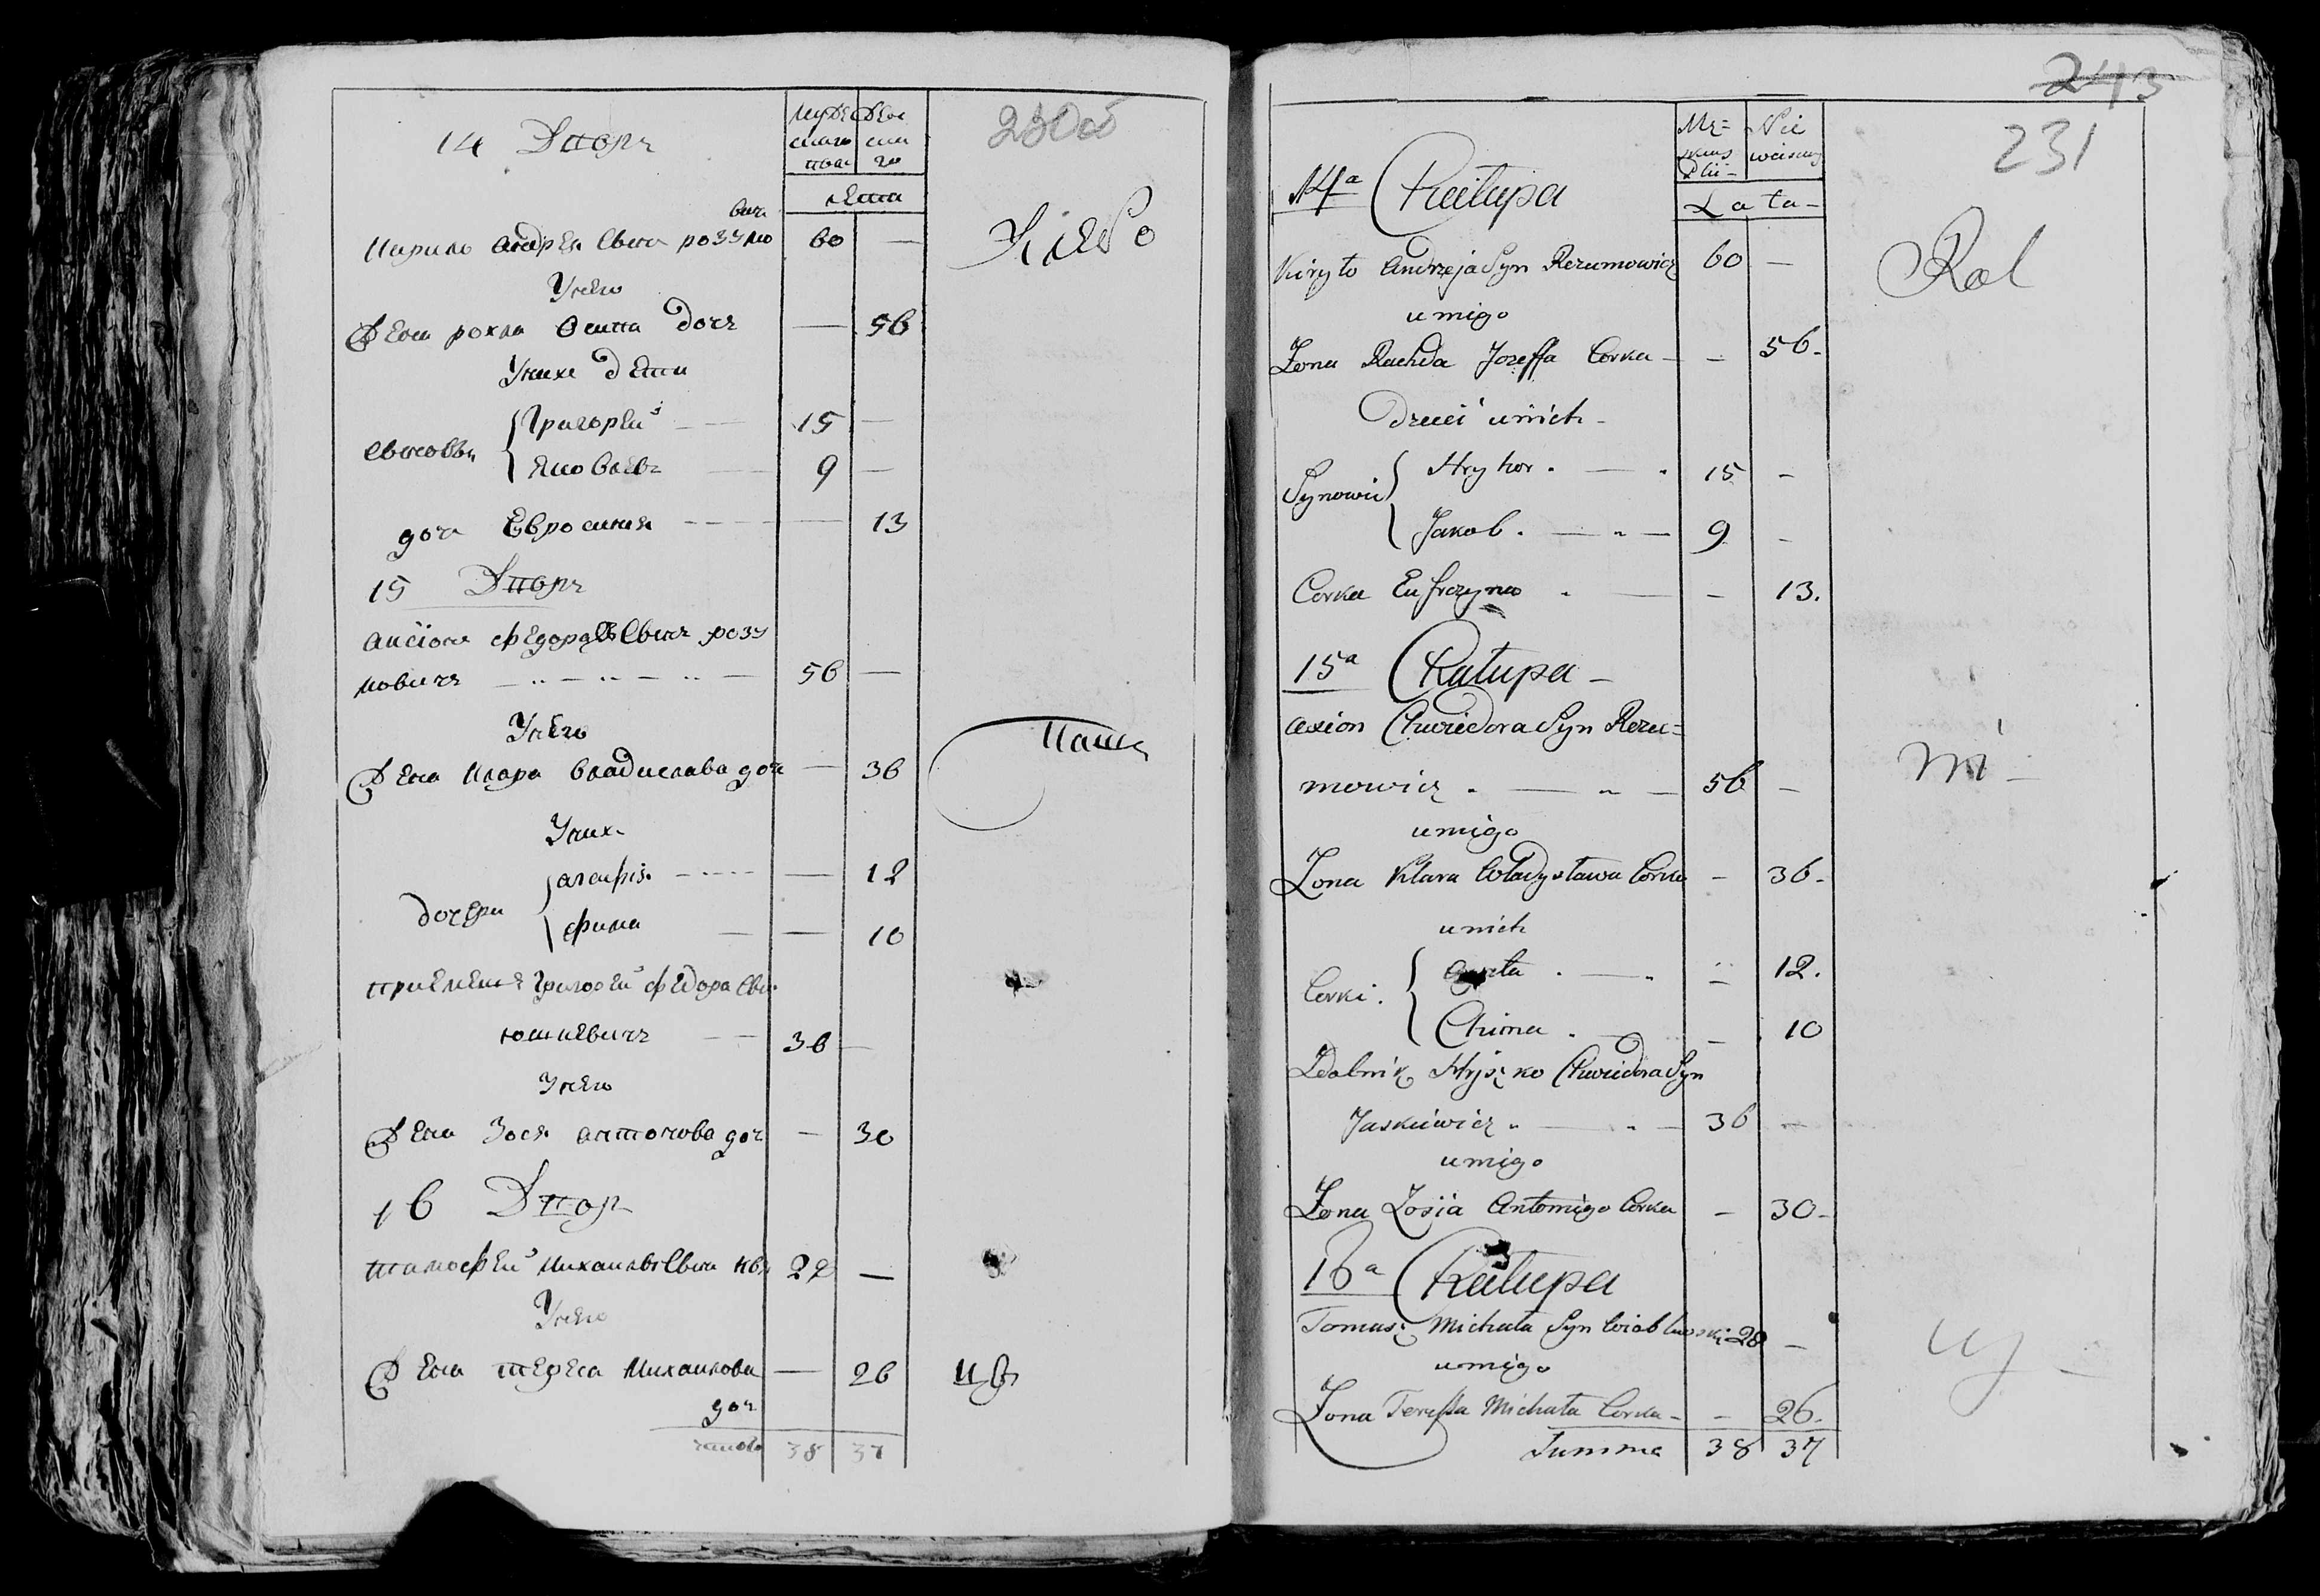 14 Дворъ
мужескаго
женскаго
лета
230об
вичъ
Кирило Андрея Сынъ розумо 60 —
Унего
Жена рохла Осипа дочь — 56
Унихъ дети
Сыновья
Григорей 15 —
Яковъ 9 —
дочь Евросиния — 13
15 Дворъ
Аксіонъ федора Сынъ розу
мовичъ 56 —
Унего
Жена Клара владислава дочь — 36
Унихъ
дочери
агафія — 12
фима — 10
приемышъ Григорей федора Сынъ
юшкевичъ 36 —
Унего
Жена Зося антонова дочь — 30
16 Дворъ
Михаила Сынъ 28 —
Унего
Жена тереса Михаилова — 26
дочь
38 37
243
231
14ª Chałupa
Męz=
Nie
wiesciey
Lata-
Kiryło Andrzeja Syn Rozumowicz 60 —
uniego
Żona Rachela Jozeffa Corka - - 56.
Dzieci unich -
Synowie
Hryhor . — . 15 -
Jakob . — " — 9 -
Corka Eufrozyna . — - 13.
15ª Chałupa -
Axion Chwiedora Syn Rozu=
mowicz . — " — 56 -
uniego
Żona Klara Władysława Corka - 36-
unich
Corki.
Agata . — . - 12.
Chima . — - 10
Hryszko Chwiedora Syn
Juszkiewicz " — " — 36 —
uniego
Żona Zosia Antoniego Corka - 30-
16ª Chałupa
Tomasz Michała Syn 28 -
uniego
Żona Teressa Michała Corka - - 26.
Summa 38 37